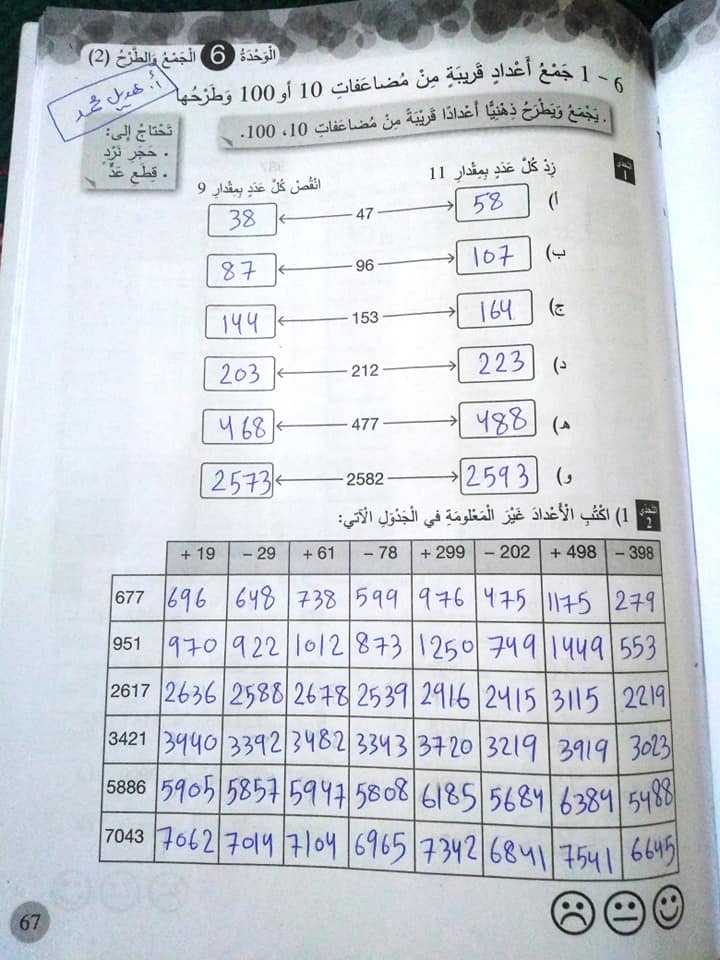 الْوَحْدَةُ 6 الْجَمْعُ وَالطَّرْحُ (2)
أ. هديل محمد
6 - 1 جَمْعُ أَعْدادٍ قَريبَةٍ مِنْ مُضاعَفاتِ 10 أو 100 وَطَرْحُها
. يَجْمَعُ وَيَطْرَحُ ذِهْنِيًّا أَعْدادًا قَرْيَبَةً مِنْ مُضاعَفاتِ 10، 100.
تَحْتاجُ إلى:
. حَجَرِ نَرْدٍ
. قِطَعِ عَدٍّ
التَّحَدّي 1
زِدْ كُلَّ عَدَدٍ بِمِقْدارِ 11 انْقُصْ كُلَّ عَدَدٍ بِمِقْدارِ 9
أ) 58 47 38
ب) 107 96 87
ج) 164 153 144
د) 223 212 203
هـ) 488 477 468
و) 2593 2582 2573
التَّحَدّي 2
1) اكْتُبِ الْأَعْدادَ غَيْرَ الْمَعْلومَةِ في الْجَدْوَلِ الْآتي:
+ 19 − 29 + 61 − 78 + 299 − 202 + 498 − 398
677 696 648 738 599 976 475 1175 279
951 970 922 1012 873 1250 749 1449 553
2617 2636 2588 2678 2539 2916 2415 3115 2219
3421 3940 3392 3482 3343 3720 3219 3919 3023
5886 5905 5857 5947 5808 6185 5684 6384 5488
7043 7062 7014 7104 6965 7342 6841 7541 6645
67